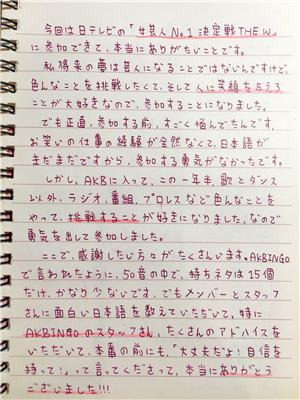 今回は日テレビの「女芸人No.1決定戦THE W」
に参加できて、本当にありがたいことです。
私将来の夢は芸人になることではないんですけど、
色んなことを挑戦したくて、そして人に笑顔を与える
ことが大好きなので、参加することになりました。
でも正直、参加する前、すごく悩んでたんです。
お笑いの仕事の経験が全然なくて、日本語が
まだまだですから、参加する勇気がなかったです。
しかし、AKBに入って、この一年半、歌とダンス
以外、ラジオ、番組、プロレスなど色んなことを
やって、挑戦することが好きになりました。なので
勇気を出して参加しました。
ここで、感謝したい方々がたくさんいます。AKBINGO
で言われたように、50音の中で、持ちネタは15個
だけ、かなり少ないです。でもメンバーとスタッフ
さんに面白い日本語を教えていただいて、特に
AKBINGOのスタッフさん、たくさんのアドバイスを
いただいて、本番の前にも、「大丈夫だよ!自信を
持って!」って言ってくださって、本当にありがとう
ございました!!!